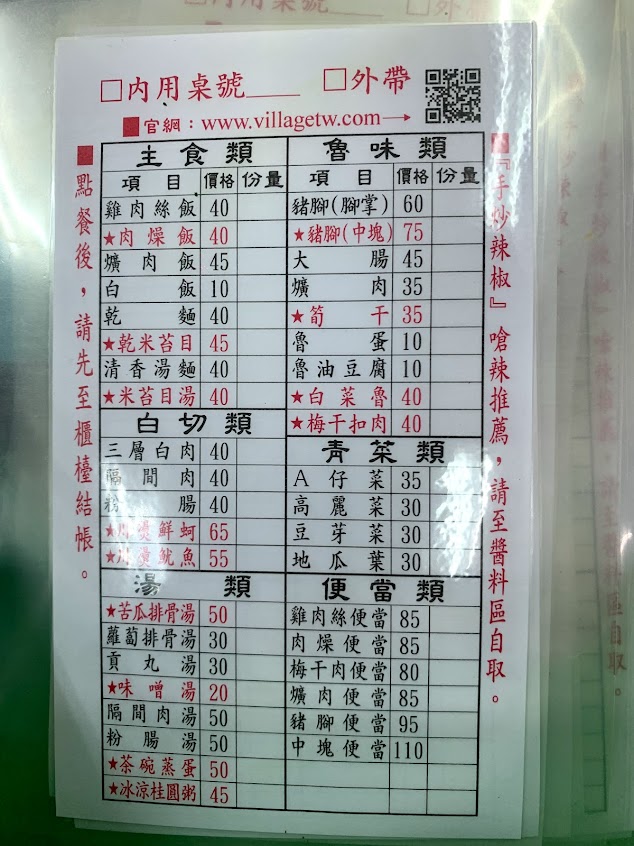 □內用桌號____ □外帶
官網：www.villagetw.com→
點餐後，請先至櫃檯結帳。
主食類
項目 價格 份量
雞肉絲飯 40
★肉燥飯 40
爌肉飯 45
白飯 10
乾麵 40
★乾米苔目 45
清香湯麵 40
★米苔目湯 40
白切類
三層白肉 40
隔間肉 40
粉腸 40
★川燙鮮蚵 65
★川燙魷魚 55
湯類
★苦瓜排骨湯 50
蘿蔔排骨湯 30
貢丸湯 30
★味噌湯 20
隔間肉湯 50
粉腸湯 50
★茶碗蒸蛋 50
★冰涼桂圓粥 45
魯味類
項目 價格 份量
豬腳(腳掌) 60
★豬腳(中塊) 75
大腸 45
爌肉 35
★筍干 35
魯蛋 10
魯油豆腐 10
★白菜魯 40
★梅干扣肉 40
青菜類
A仔菜 35
高麗菜 30
豆芽菜 30
地瓜葉 30
便當類
雞肉絲便當 85
肉燥便當 85
梅干肉便當 80
爌肉便當 85
豬腳便當 95
中塊便當 110
『手炒辣椒』嗆辣推薦，請至醬料區自取。